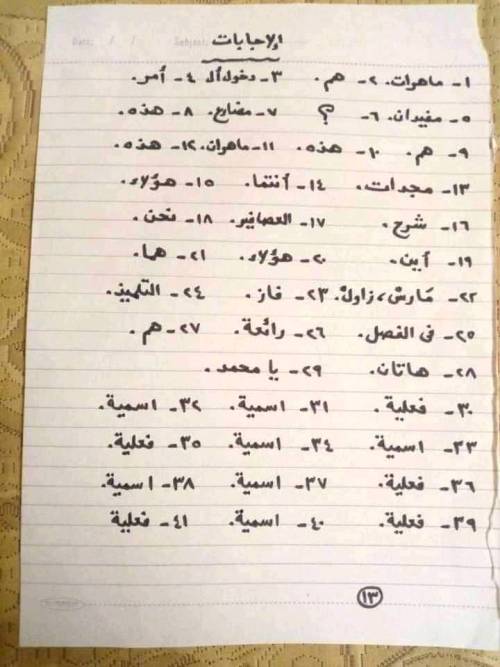 Date: / / Subject:
الإجابات
١- ماهرات. ٢- هم. ٣- دخول ال ٤- أمر.
٥- مفيدان. ٦- ؟ ٧- مضارع. ٨- هذه.
٩- هم. ١٠- هذه. ١١- ماهران. ١٢- هذه.
١٣- مجدات. ١٤- أنتما. ١٥- هؤلاء.
١٦- شرح. ١٧- العصافير. ١٨- نحن.
١٩- أين. ٢٠- هؤلاء. ٢١- هما.
٢٢- مَارسْ، زاولْ. ٢٣- فاز. ٢٤- التلميذ.
٢٥- فى الفصل. ٢٦- رائعة. ٢٧- هم.
٢٨- هاتان. ٢٩- يا محمد.
٣٠- فعلية. ٣١- اسمية. ٣٢- اسمية.
٣٣- اسمية. ٣٤- اسمية. ٣٥- فعلية.
٣٦- فعلية. ٣٧- اسمية. ٣٨- اسمية.
٣٩- فعلية. ٤٠- اسمية. ٤١- فعلية
١٣